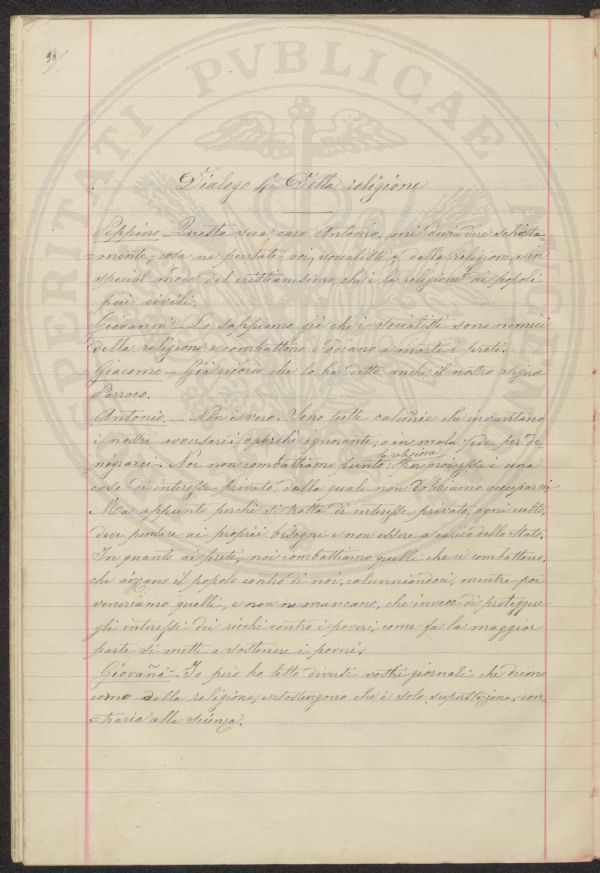 34/
PROSPERITATI PVBLICAE AVGENDAE
Dialogo 4º Della religione
Peppino – Questa sera caro Antonio, mi devi dire schietta-
=mente, cosa ne pensate voi, socialisti, della religione, e in
special modo del cristianesimo, ch'è la religione dei popoli
più civili.
Giovanni – Lo sappiamo già che i socialisti sono nemici
della religione e combattono e odiano a morte i preti.
Giacomo – Già ricordo che lo ha detto anche il nostro Signor
Parroco.
Antonio. – Non è vero. Sono tutte calunnie che inventano
i nostri avversari, o perchè ignoranti, o in mala fede per de
nigrarci. Noi non combattiamo la religione. Per noi essa è una
cosa di interesse privato, dalla quale non dobbiamo occuparci.
Ma appunto perchè si tratta di interesse privato, ogni culto,
deve pensare ai proprii bisogni e non essere a carico dello Stato.
In quanto ai preti, noi combattiamo quelli che ci combattono,
che aizzano il popolo contro di noi, calunniandoci, mentre poi
veneriamo quelli, e non ne mancano, che invece di proteggere
gli interessi dei ricchi contro i poveri, come fa la maggior
parte si mette a sostenere i poveri.
Giovanni – Io però ho letto diversi vostri giornali che dicono
della religione, e sostengono che è solo superstizione, con-
=traria alla scienza.